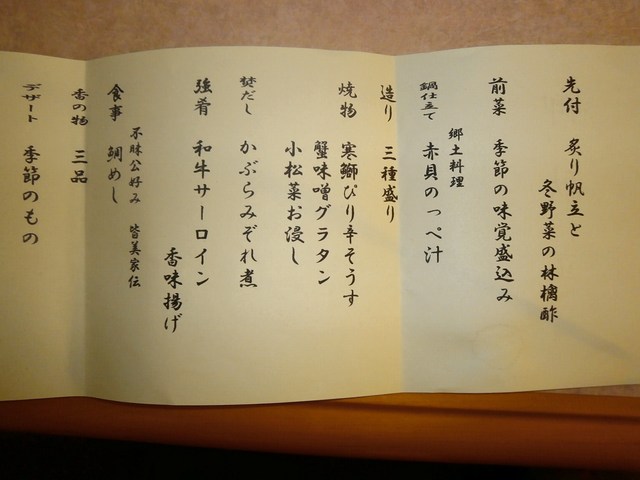 先付　炙り帆立と
冬野菜の林檎酢
前菜　季節の味覚盛込み
鍋仕立て　郷土料理
赤貝のっぺ汁
造り　三種盛り
焼物　寒鰤ぴり辛そうす
蟹味噌グラタン
小松菜お浸し
焚だし　かぶらみぞれ煮
強肴　和牛サーロイン
香味揚げ
不昧公好み　皆美家伝
食事　鯛めし
香の物　三品
デザート　季節のもの